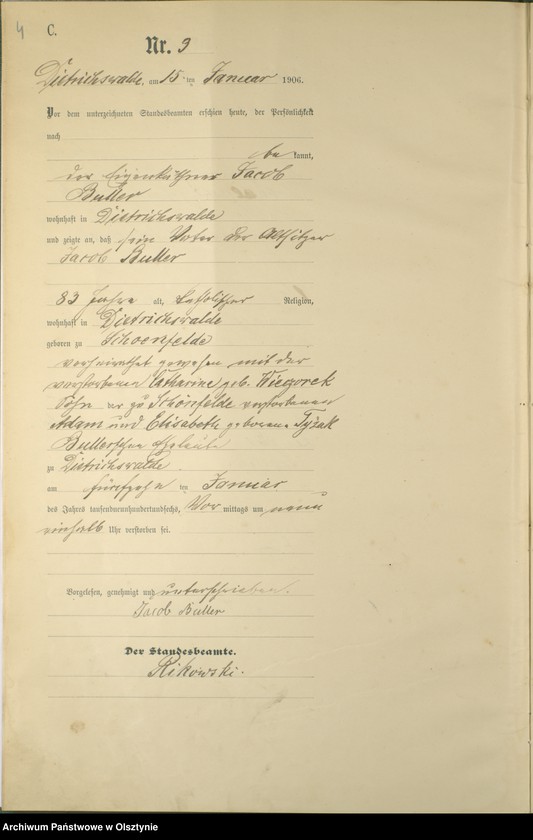 4
C.
Nr. 3
Dietrichswalde, am 15 ten Januar 1906.
Vor dem unterzeichneten Standesbeamten erschien heute, der Persönlichkeit
nach
be kannt,
der Eigenkäthner Jacob
Buller
wohnhaft in Dietrichswalde
und zeigte an, daß sein Vater der Altsitzer
Jacob Buller
83 Jahre alt, katholischer Religion,
wohnhaft in Dietrichswalde
geboren zu Schoenfelde
verheirathet gewesen mit der
verstorbenen Catharine geb. Wiegorek
Sohn der zu Schönfelde verstorbenen
Adam und Elisabeth geborene
Bullerschen Eheleute
zu Dietrichswalde
am fünfzehn ten Januar
des Jahres tausendneunhundertsechs, Vor mittags um neun
einhalb Uhr verstorben sei.
Vorgelesen, genehmigt und unterschrieben.
Jacob Buller
Der Standesbeamte.
Rikowski.
Archiwum Państwowe w Olsztynie